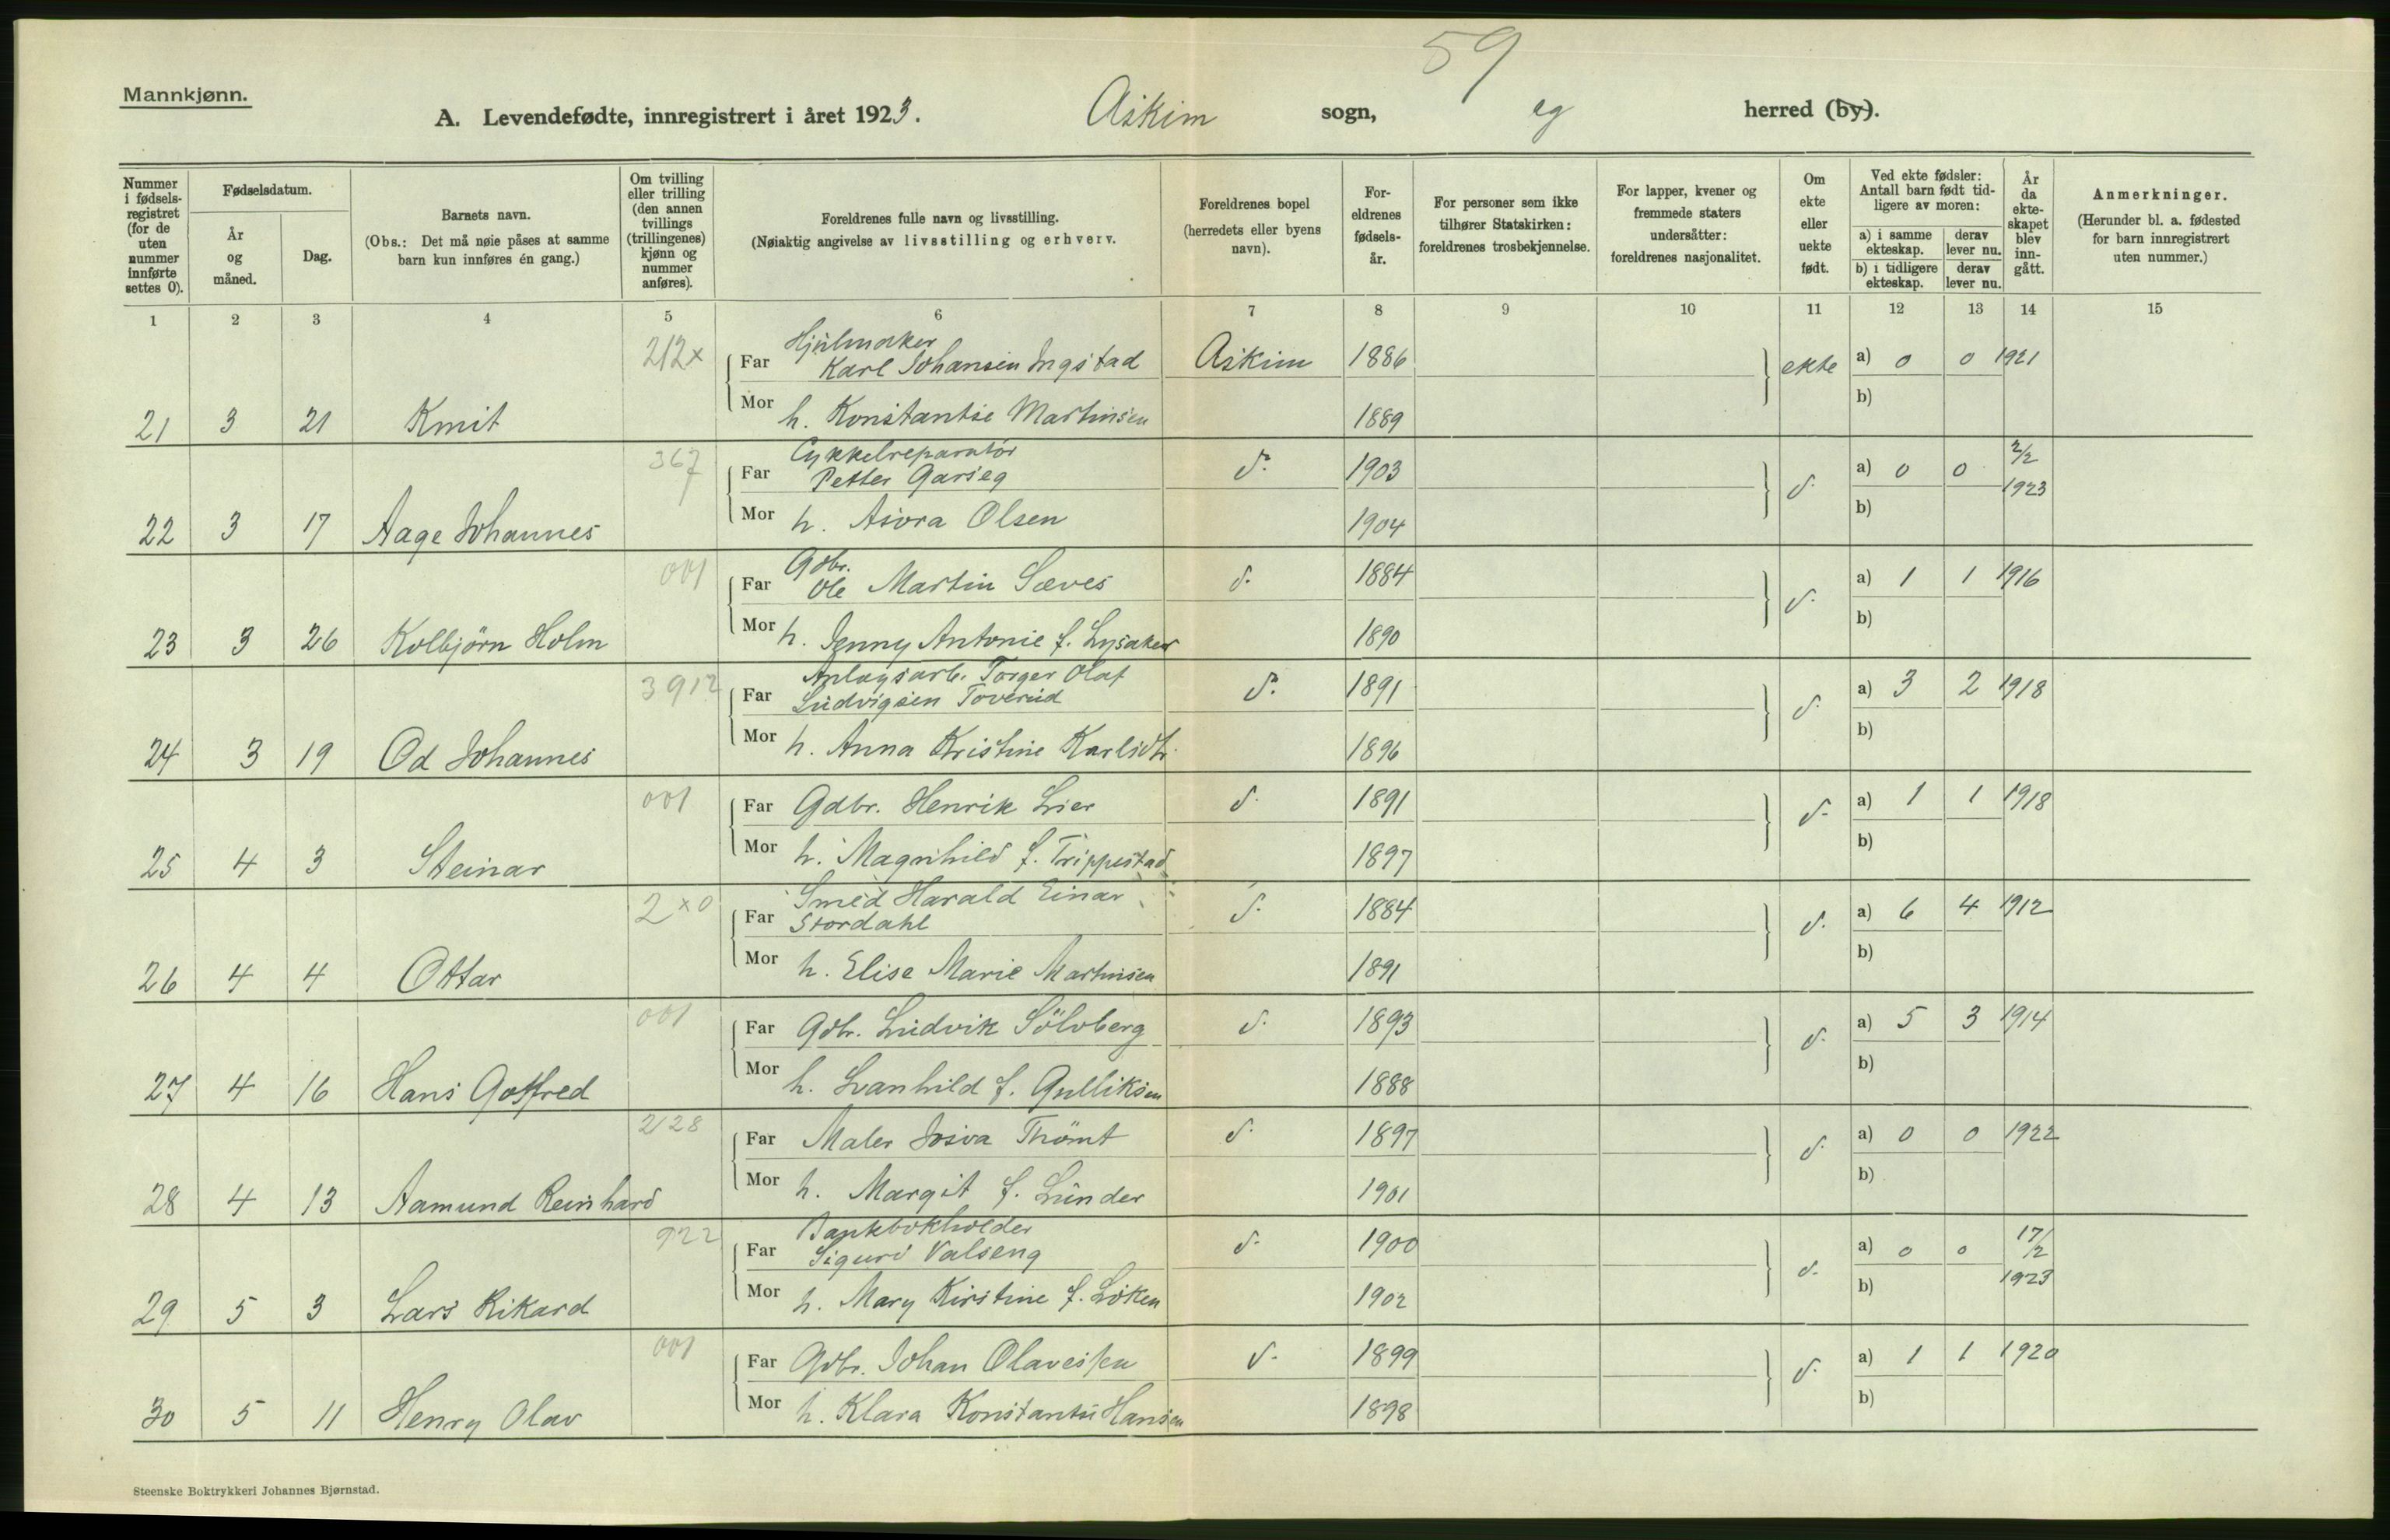 59
Mannkjønn.
A. Levendefødte, innregistrert i året 1923. Askim sogn, og herred (by).
Nummer i fødselsregistret (for de uten nummer innførte settes 0).
Fødselsdatum.
År og måned.
Dag.
Barnets navn.
(Obs.: Det må nøie påses at samme barn kun innføres én gang.)
Om tvilling eller trilling (den annen tvillings (trillingenes) kjønn og nummer anføres).
Foreldrenes fulle navn og livsstilling.
(Nøiaktig angivelse av livsstilling og erhverv.
Foreldrenes bopel (herredets eller byens navn).
Foreldrenes fødselsår.
For personer som ikke tilhører Statskirken: foreldrenes trosbekjennelse.
For lapper, kvener og fremmede staters undersåtter: foreldrenes nasjonalitet.
Om ekte eller uekte født.
Ved ekte fødsler: Antall barn født tidligere av moren:
a) i samme ekteskap. derav lever nu.
b) i tidligere ekteskap. derav lever nu.
År da ekteskapet blev inngått.
Anmerkninger.
(Herunder bl. a. fødested for barn innregistrert uten nummer.)
1 2 3 4 5 6 7 8 9 10 11 12 13 14 15
212x Hjulmaker
Far Karl Johansen Ingstad Askim 1886 ekte a) 0 0 1921
21 3 21 Knut Mor h. Konstantse Martinsen 1889 b)
367 Cykkelreparatør
Far Petter Garseg d. 1903 d. a) 0 0 2/2 1923
22 3 17 Aage Johannes Mor h. Asora Olsen 1904 b)
001 Gdbr.
Far Ole Martin Sæves d. 1884 d. a) 1 1 1916
23 3 26 Kolbjörn Holm Mor h. Jenny Antonie f. Lysaker 1890 b)
3912 Anlægsarb. Torger Olaf
Far Ludvigsen Toverud d. 1891 d. a) 3 2 1918
24 3 19 Od Johannes Mor h. Anna Kristine Karlsdtr. 1896 b)
001 Far Gdbr. Henrik Lier d. 1891 d. a) 1 1 1918
25 4 3 Steinar Mor h. Magnhild f. Trippestad 1897 b)
2x0 Smed Harald Einar
Far Stordahl d. 1884 d. a) 6 4 1912
26 4 4 Ottar Mor h. Elise Marie Martinsen 1891 b)
001 Far Gdbr. Ludvik Sölvberg d. 1893 d. a) 5 3 1914
27 4 16 Hans Gotfred Mor h. Svanhild f. Gulliksen 1888 b)
2128 Far Maler Josva Thömt d. 1897 d. a) 0 0 1922
28 4 13 Aamund Reinhard Mor h. Margit f. Lunder 1901 b)
922 Bankbokholder
Far Sigurd Valseng d. 1900 d. a) 0 0 17/2 1923
29 5 3 Lars Rikard Mor h. Mary Kirstine f. Löken 1902 b)
001 Far Gdbr. Johan Olavessen d. 1899 d. a) 1 1 1920
30 5 11 Henry Olav Mor h. Klara Konstantse Hansen 1898 b)
Steenske Boktrykkeri Johannes Bjørnstad.